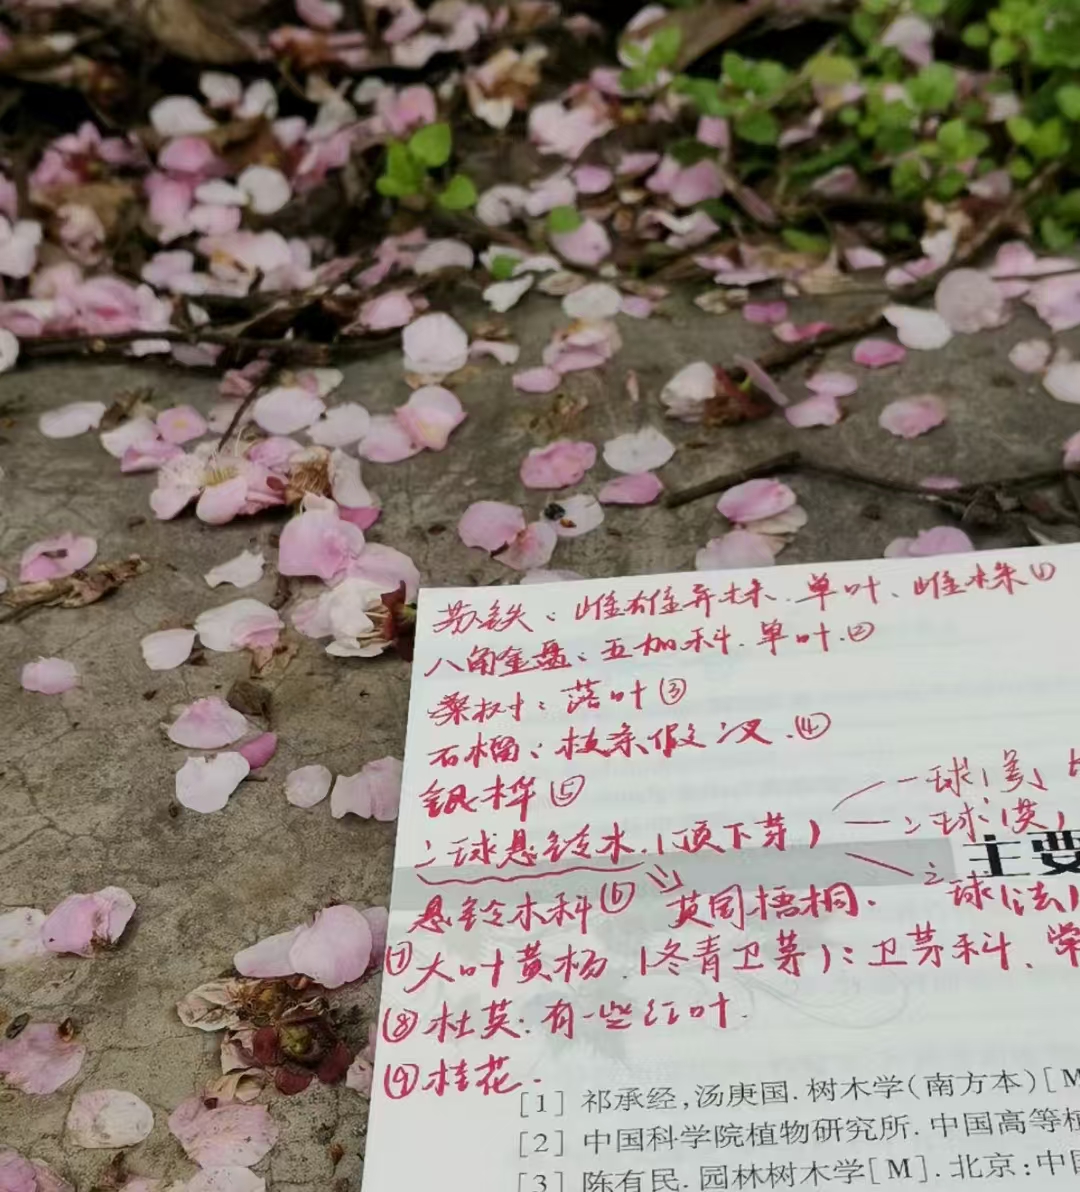 苏铁：雌雄异株、单叶、雌株①
八角金盘：五加科.单叶.②
桑树：落叶③
石榴：枝条假二叉.④
银桦⑤
二球悬铃木.(顶下芽)
一球(美)
二球(英)
三球(法)
悬铃木科⑥ 英国梧桐.
主要
⑦大叶黄杨.(冬青卫茅)：卫茅科、常
⑧杜英：有一些红叶.
⑨桂花.
[1] 祁承经,汤庚国.树木学(南方本)[M
[2] 中国科学院植物研究所.中国高等植
[3] 陈有民.园林树木学[M].北京:中国